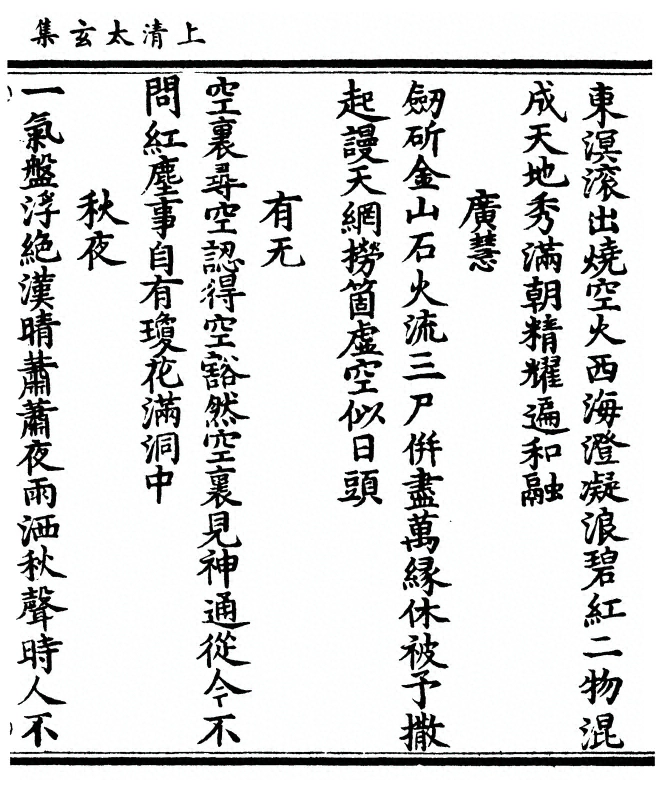 上清太玄集
東溟滚出燒空火西海澄凝浪碧紅二物混
成天地秀滿朝精耀遍和融
廣慧
劒斫金山石火流三尸倂盡萬緣休被予撒
起謾天網撈箇虛空似日頭
有无
空裏尋空認得空豁然空裏見神通從今不
問紅塵事自有瓊花滿洞中
秋夜
一氣盤浮絶漢晴蕭蕭夜雨洒秋聲時人不